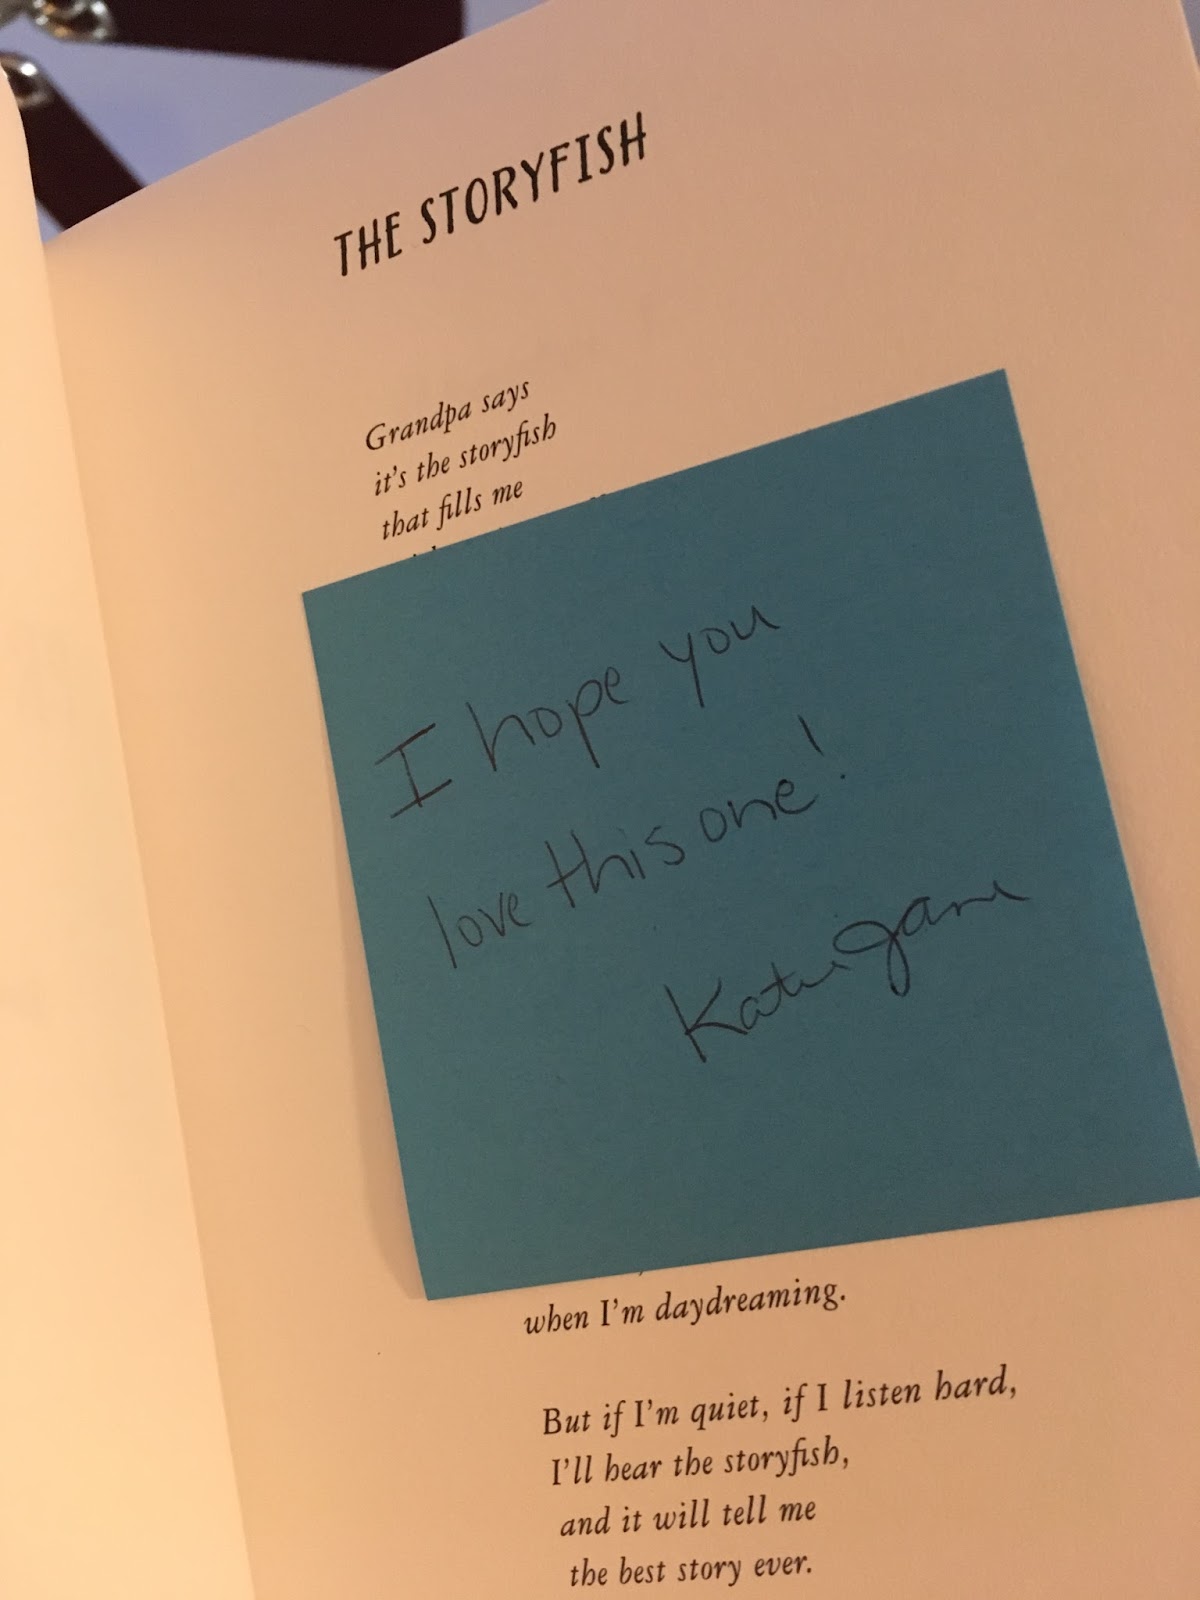 THE STORYFISH
Grandpa says
it's the storyfish
that fills me
I hope you
love this one!
Katie Jane
when I'm daydreaming.
But if I'm quiet, if I listen hard,
I'll hear the storyfish,
and it will tell me
the best story ever.